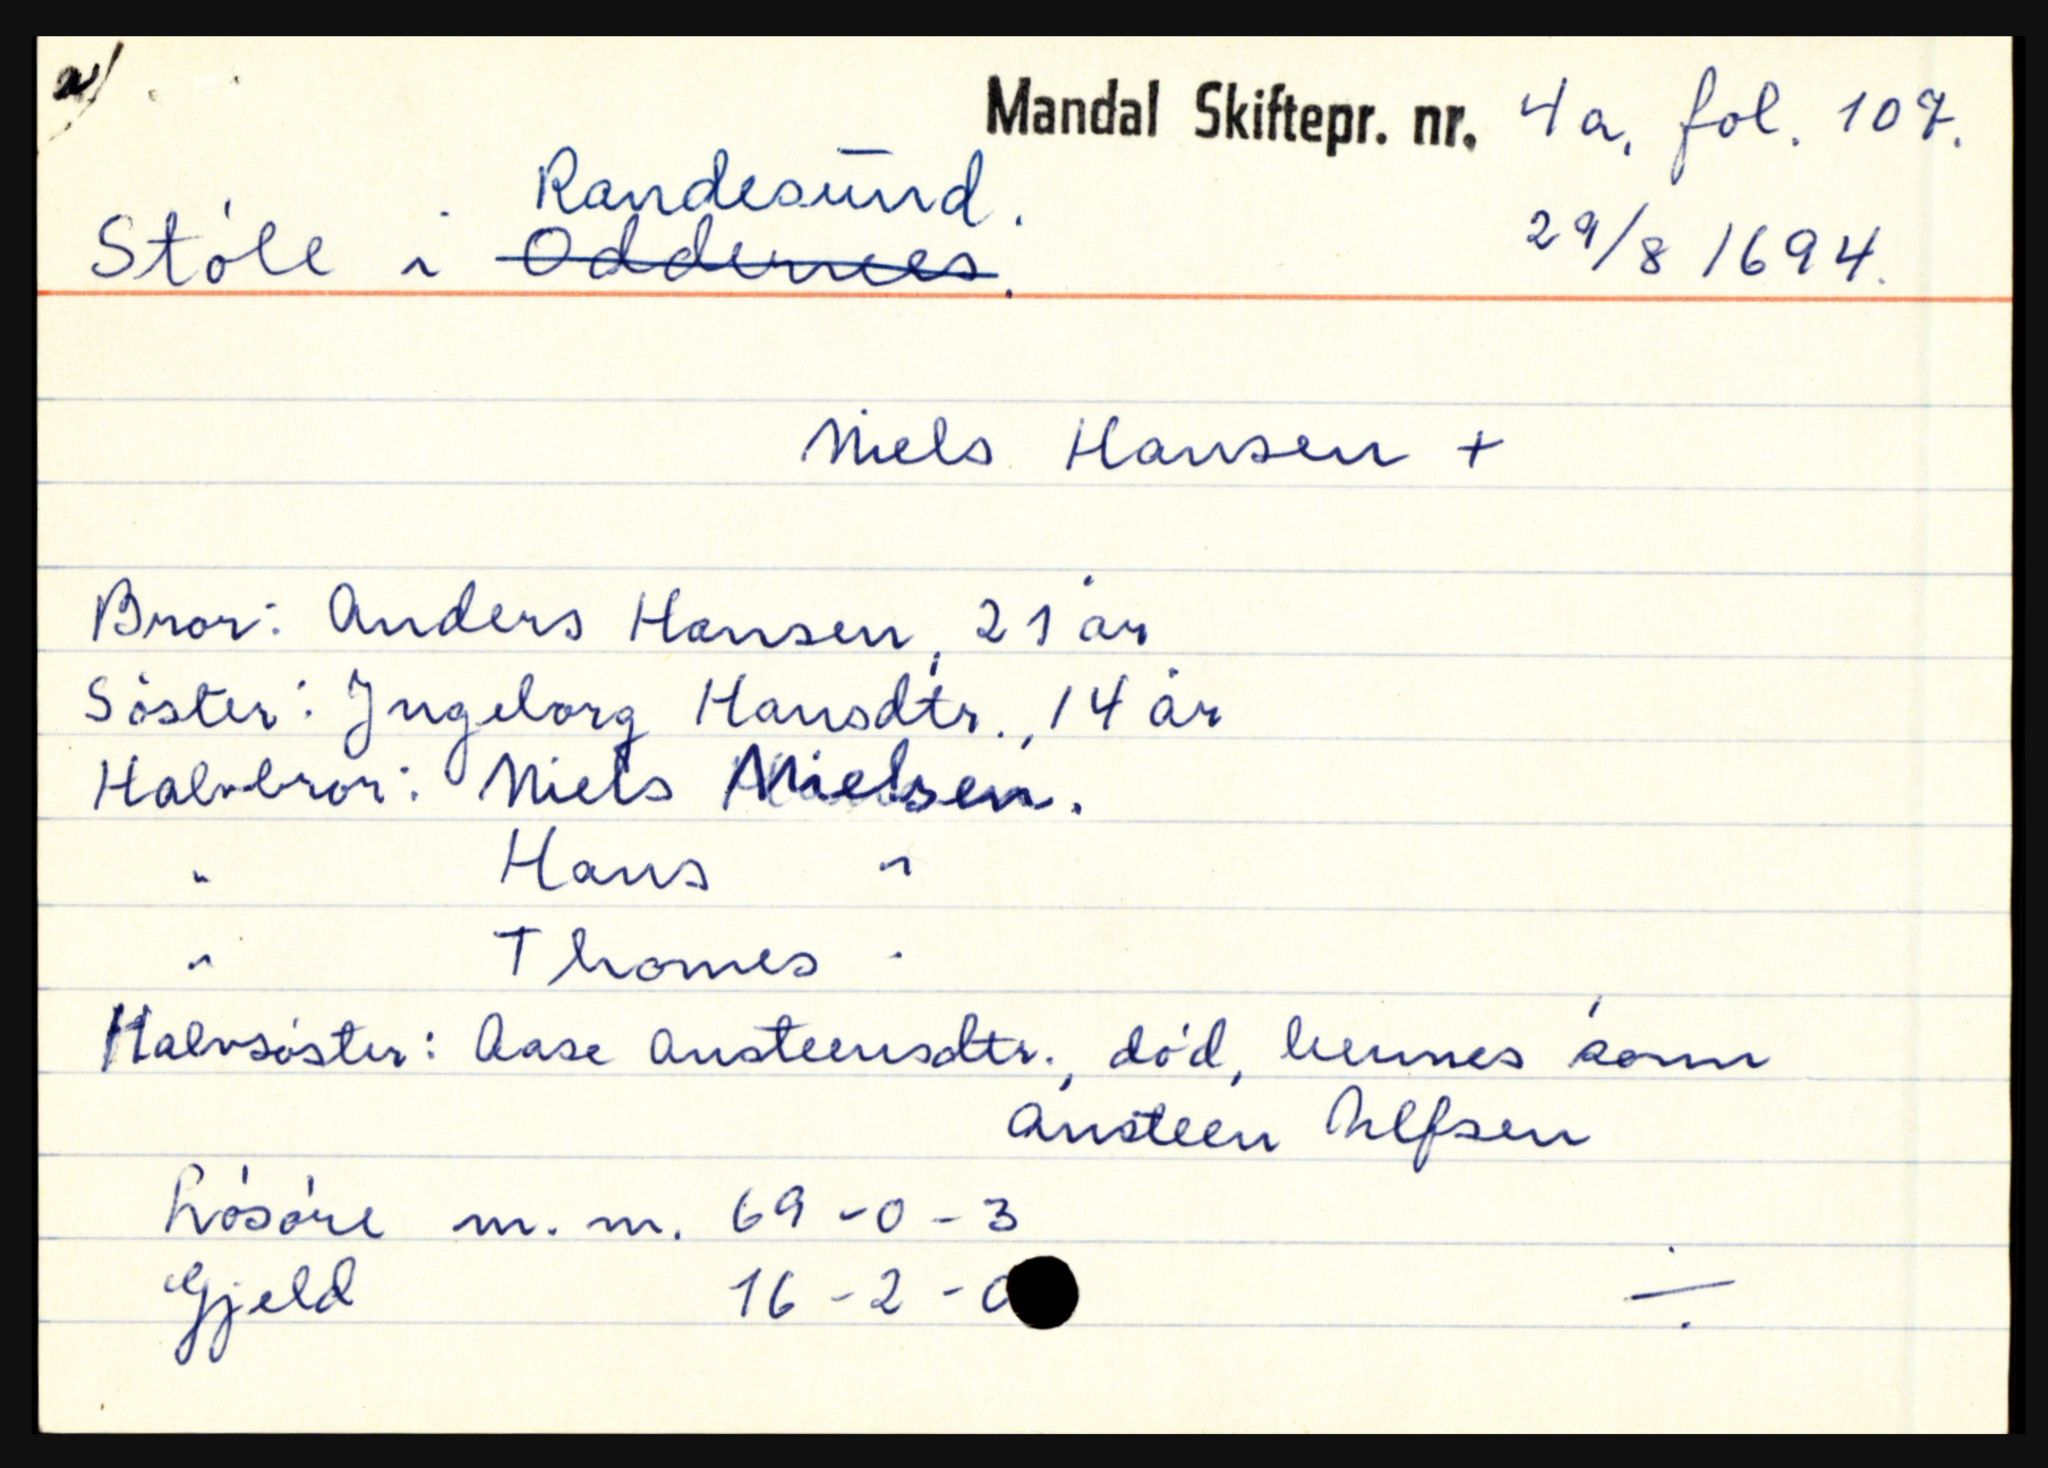 a)
Mandal Skiftepr. nr. 4a, fol. 107.
Randesund.
Støle i Oddernes. 29/8 1694.
Niels Hansen +
Bror: Anders Hansen, 21 år
Söster: Ingeborg Hansdtr., 14 år
Halvbror: Niels Nielsen.
" Hans "
" Thomes "
Halvsöster: Aase Ansteensdtr., död, hennes sönn
Ansteen Ulfsen
Lösöre m.m. 69-0-3
Gjeld 16-2-0 ÷